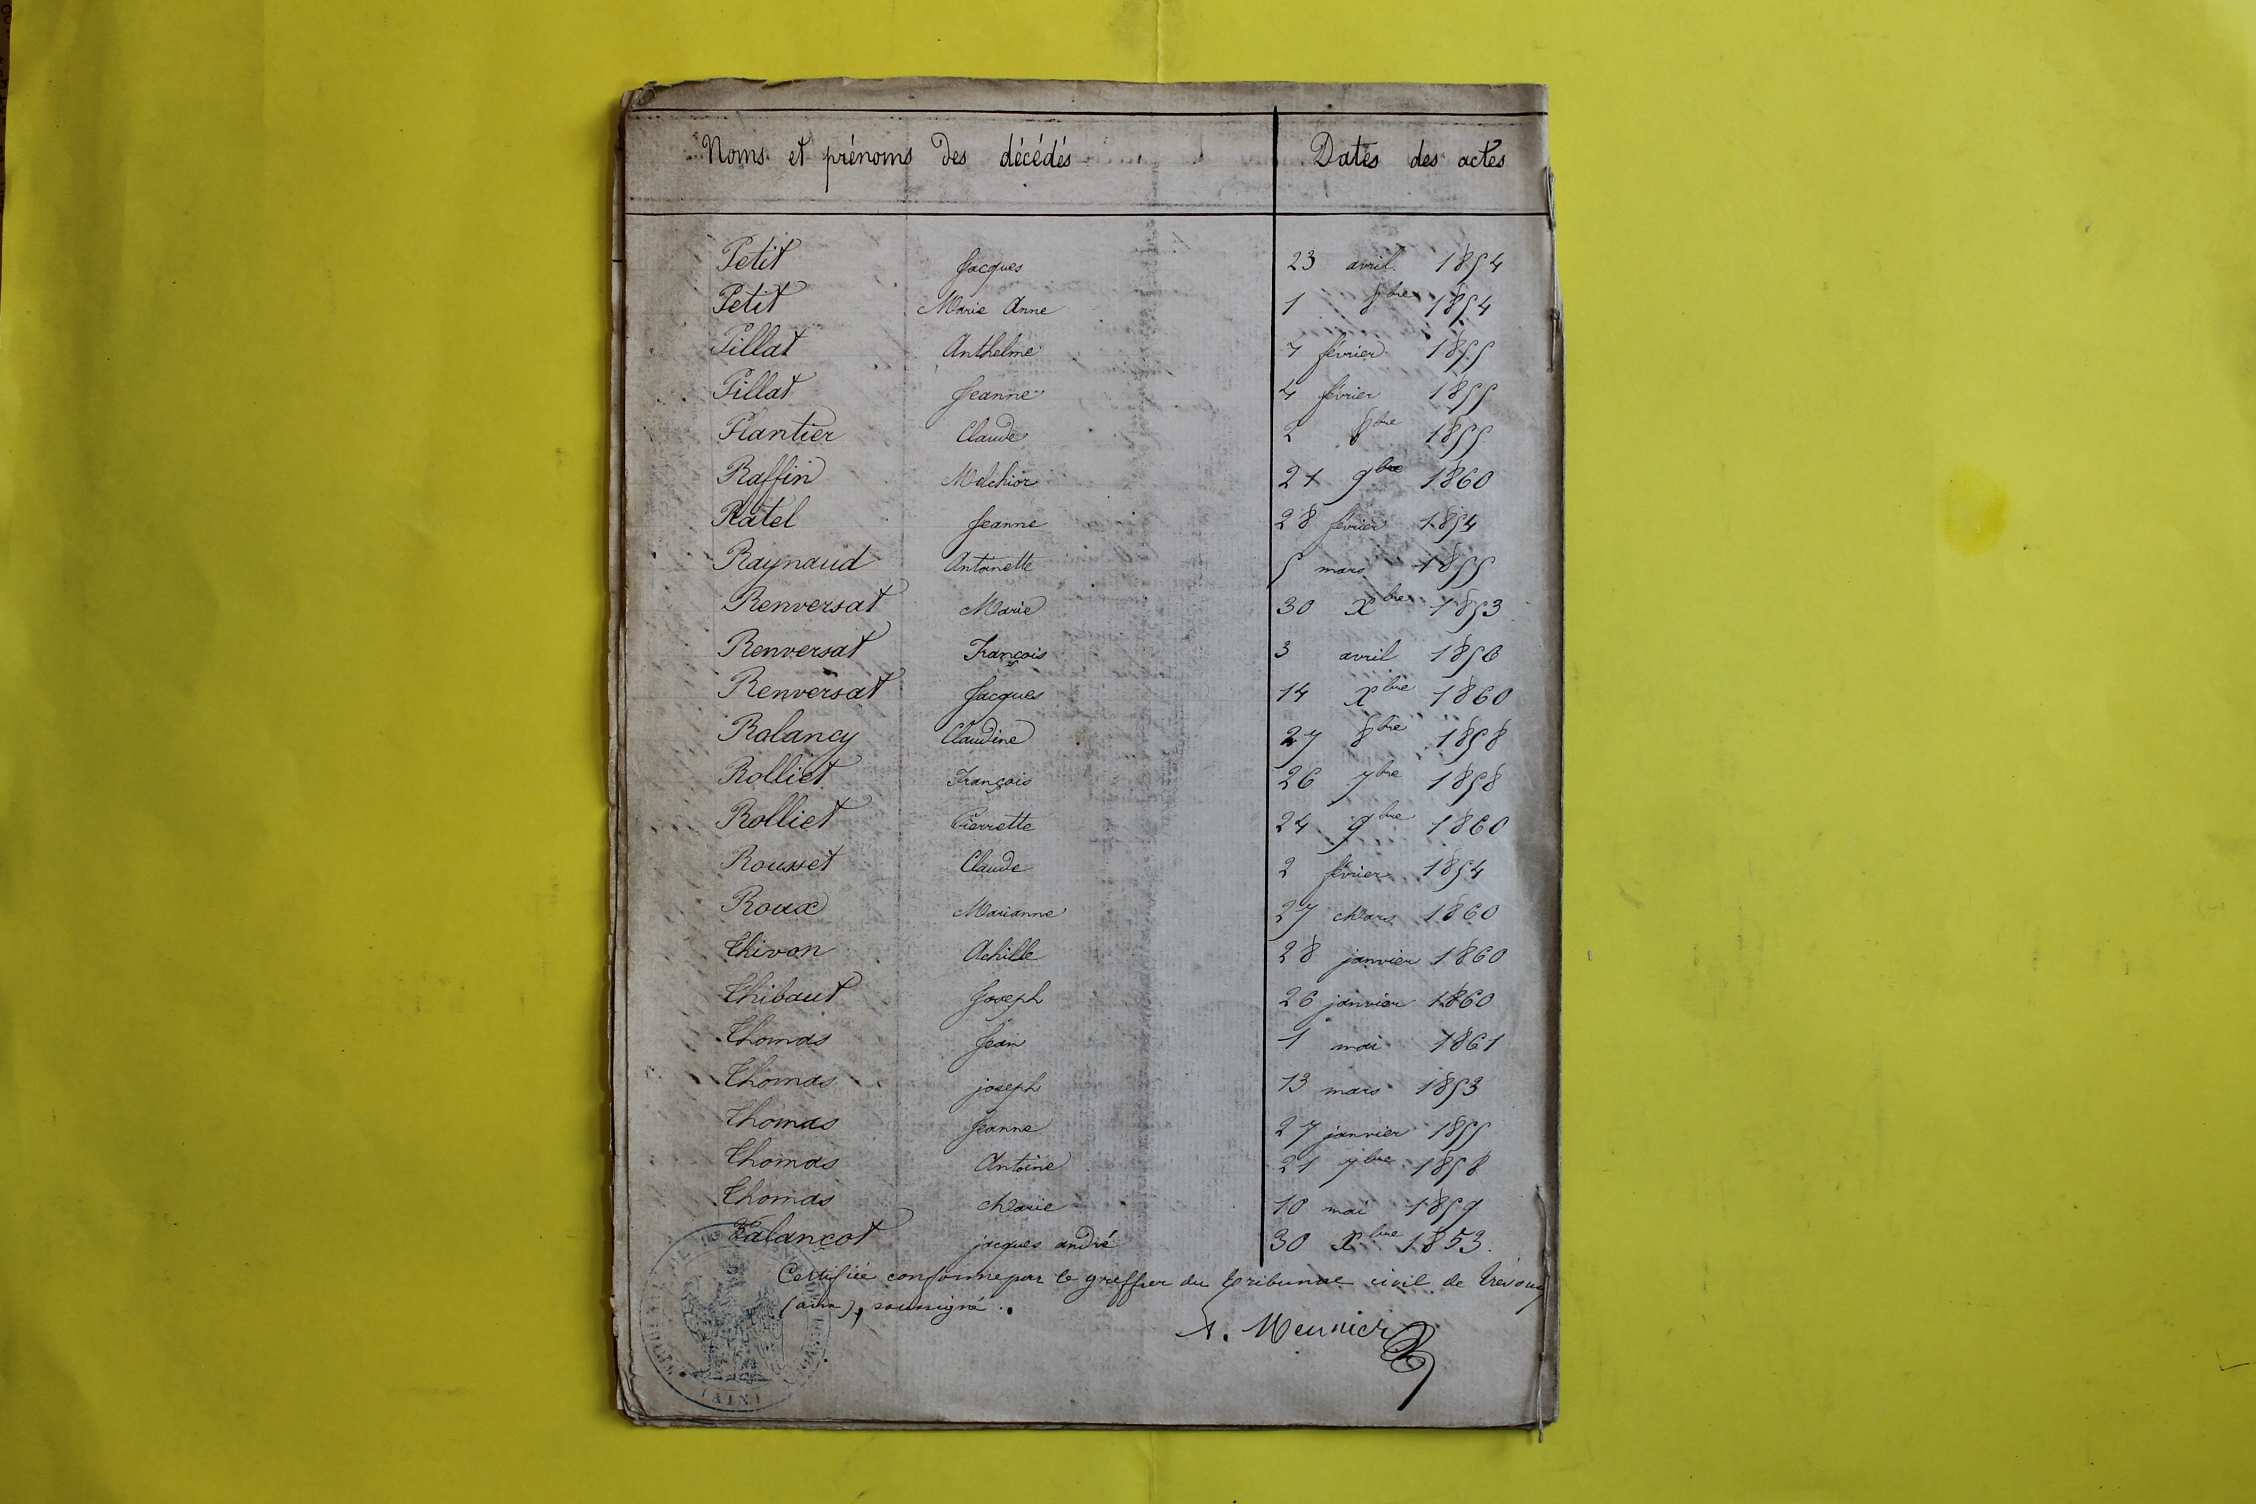 Noms et prénoms des décédés Dates des actes
Petit Jacques 23 avril 1854
Petit Marie Anne 1 8bre 1854
Pillat Anthelme 7 février 1855
Pillat Jeanne 4 février 1855
Plantier Claude 2 8bre 1855
Raffin Melchior 21 9bre 1860
Ratel Jeanne 28 février 1854
Raynaud Antoinette 5 mars 1855
Renversat Marie 30 Xbre 1853
Renversat François 3 avril 1856
Renversat Jacques 14 Xbre 1860
Rolancy Claudine 27 8bre 1858
Rolliet François 26 7bre 1858
Rolliet Pierrette 24 9bre 1860
Rousset Claude 2 février 1854
Roux Marianne 27 Mars 1860
Thivon Achille 28 janvier 1860
Thibaut Joseph 26 janvier 1860
Thomas Jean 1 mai 1861
Thomas joseph 13 mars 1853
Thomas Jeanne 27 janvier 1855
Thomas Antoine 21 7bre 1858
Thomas Marie 10 mai 1859
Valançot jacques andré 30 Xbre 1853.
Certifiée conforme par le greffier du tribunal civil de Trévoux
(ain), soussigné.
A. Meunier
(AIN)